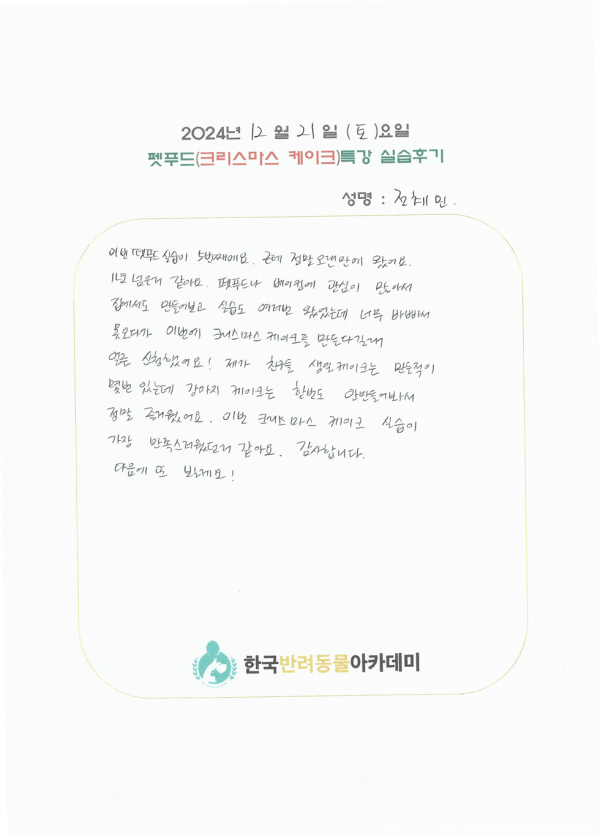 2024년 12월 21일 (토)요일
펫푸드(크리스마스 케이크)특강 실습후기
성명 : 전혜민.
이번 펫푸드 실습이 5번째에요. 근데 정말 오랜만에 왔어요.
1년 넘은거 같아요. 펫푸드나 베이킹에 관심이 많아서
집에서도 만들어보고 실습도 여러번 왔었는데 너무 바빠서
못오다가 이번에 크리스마스 케이크를 만든다길래
얼른 신청했어요! 제가 친구들 생일케이크는 만든적이
몇번 있는데 강아지 케이크는 한번도 안만들어봐서
정말 즐거웠어요. 이번 크리스마스 케이크 실습이
가장 만족스러웠던거 같아요. 감사합니다.
다음에 또 뵐게요!
한국반려동물아카데미